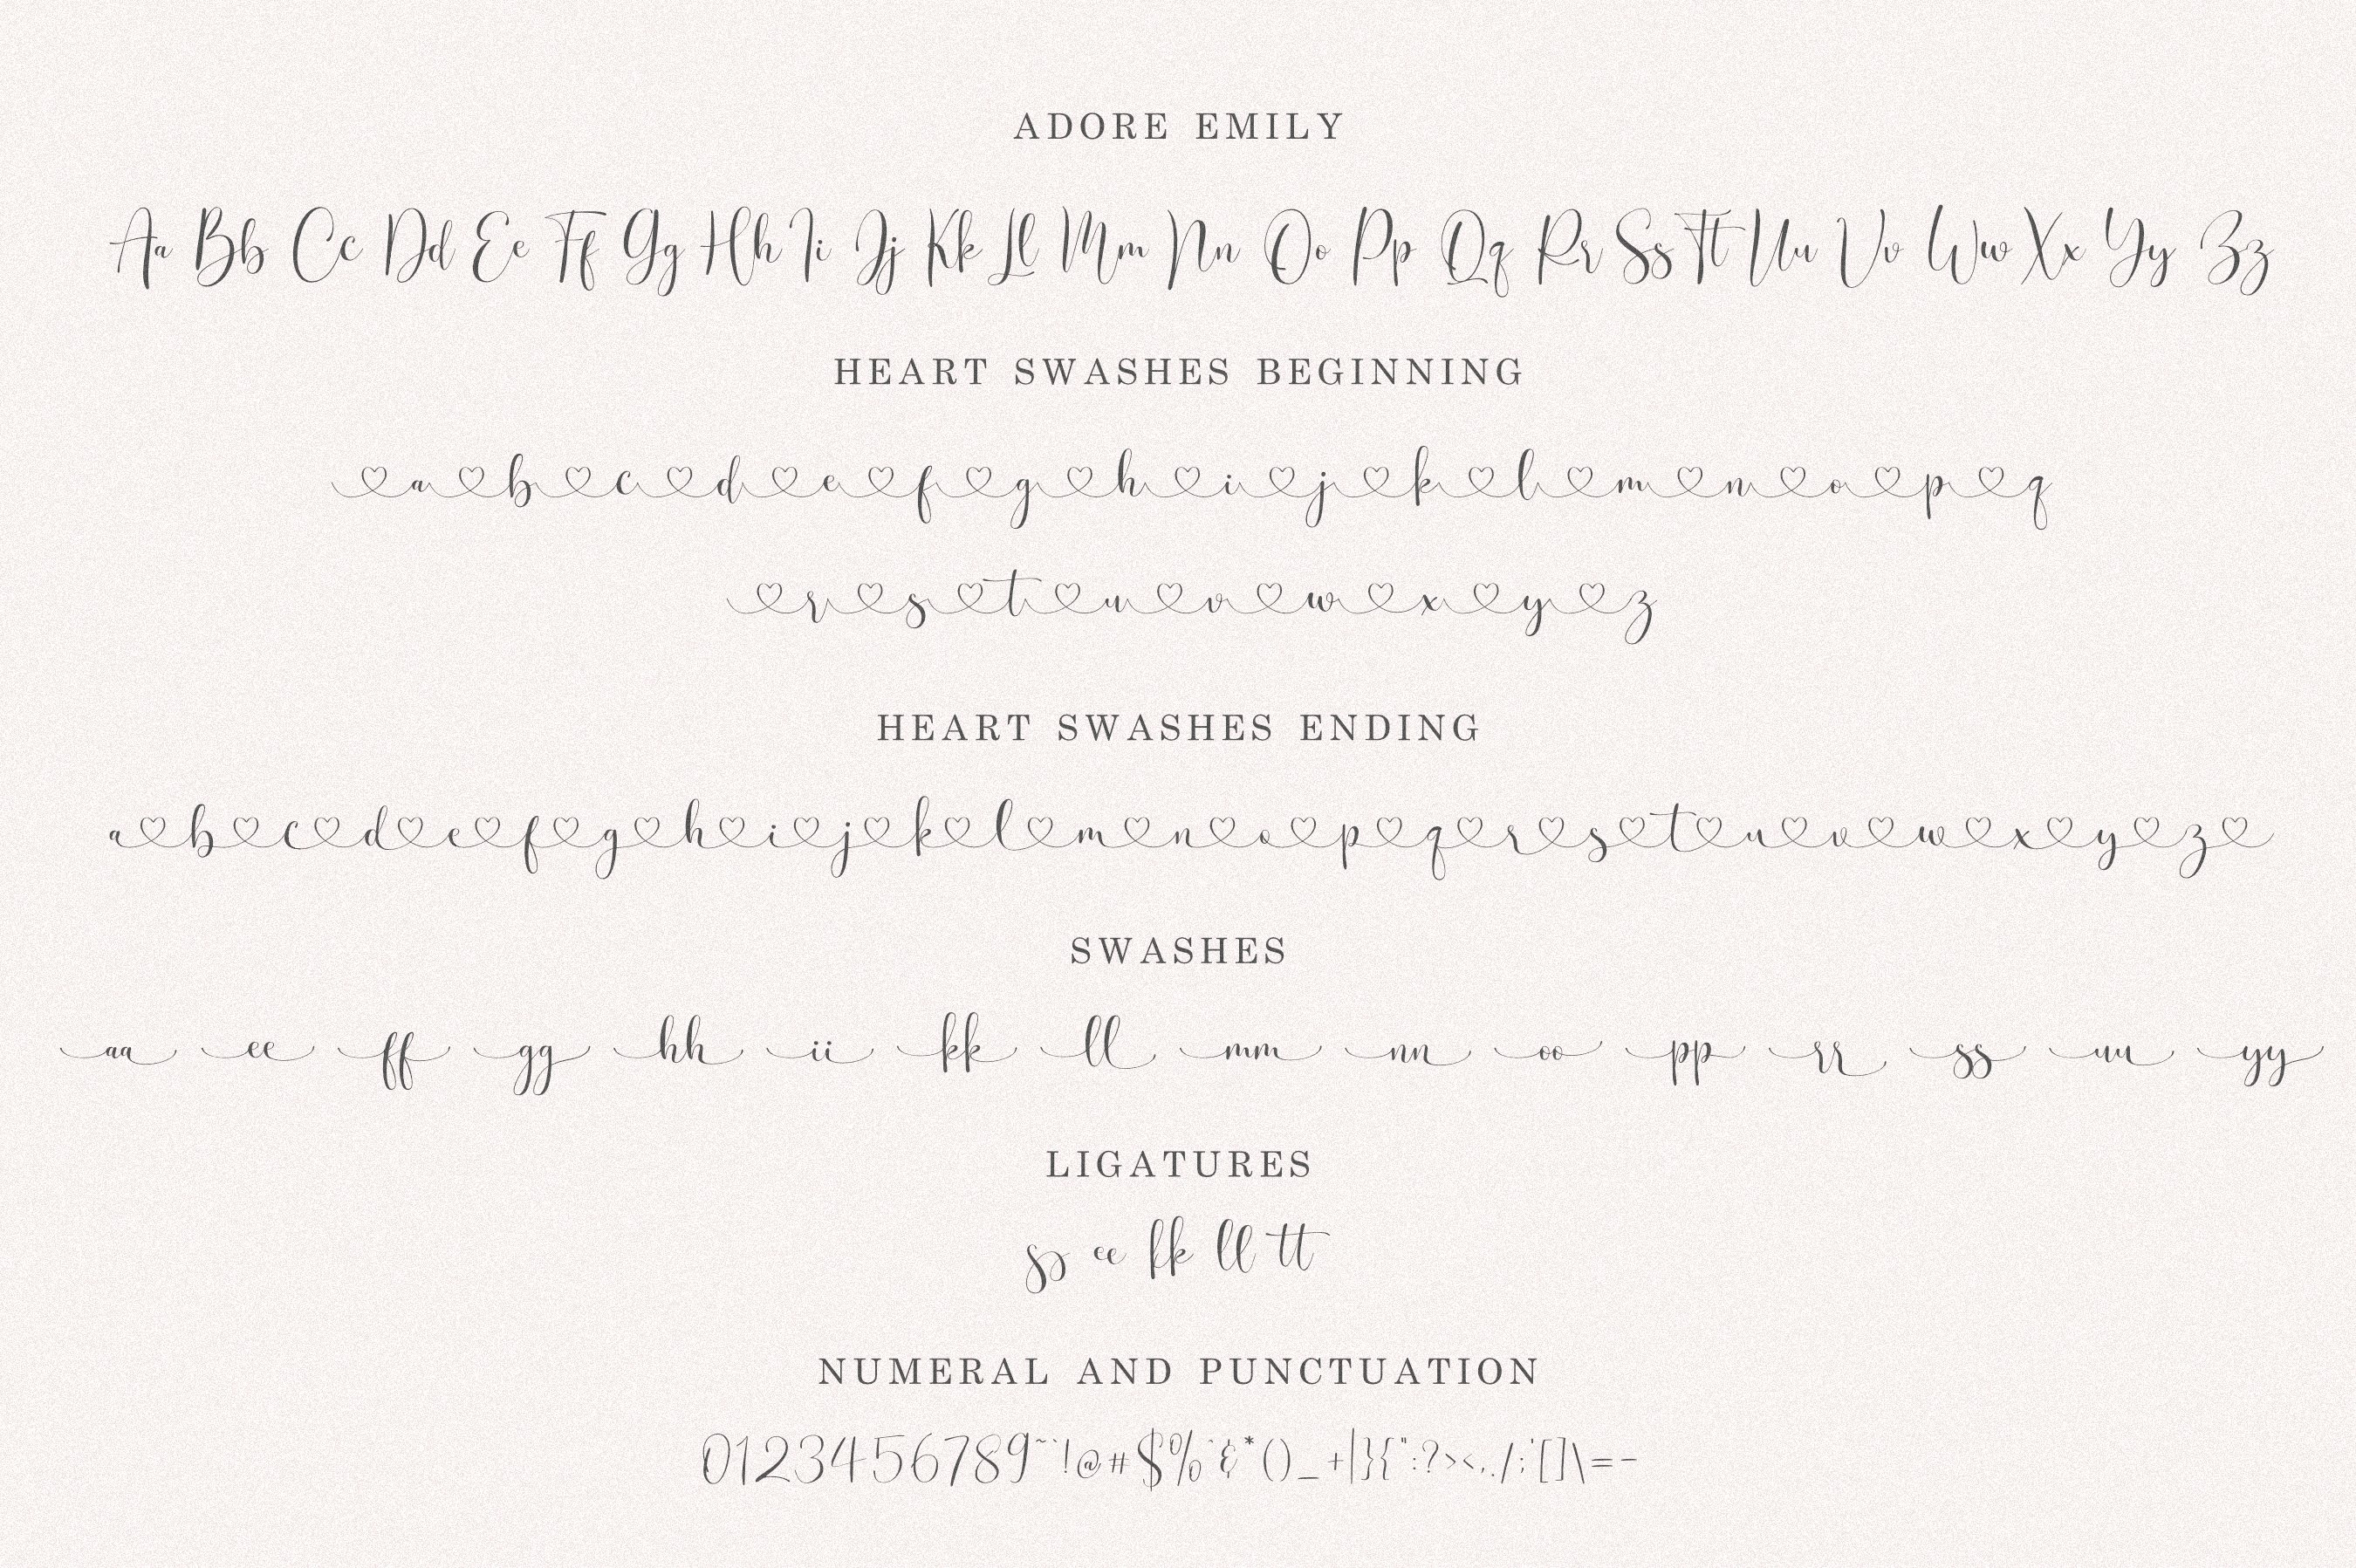 ADORE EMILY
Aa Bb Cc Dd Ee Ff Gg Hh Ii Jj Kk Ll Mm Nn Oo Pp Qq Rr Ss Tt Uu Vv Ww Xx Yy Zz
HEART SWASHES BEGINNING
a b c d e f g h i j k l m n o p q
r s t u v w x y z
HEART SWASHES ENDING
a b c d e f g h i j k l m n o p q r s t u v w x y z
SWASHES
aa ee ff gg hh ii kk ll mm nn oo pp rr ss uu yy
LIGATURES
ss ee kk ll tt
NUMERAL AND PUNCTUATION
0123456789~`!@#$%^&*()_+|}{":?><,./;'[]\=-